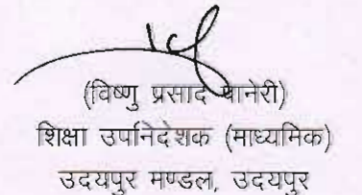 (विष्णु प्रसाद पानेरी)
शिक्षा उपनिदेशक (माध्यमिक)
उदयपुर मण्डल, उदयपुर